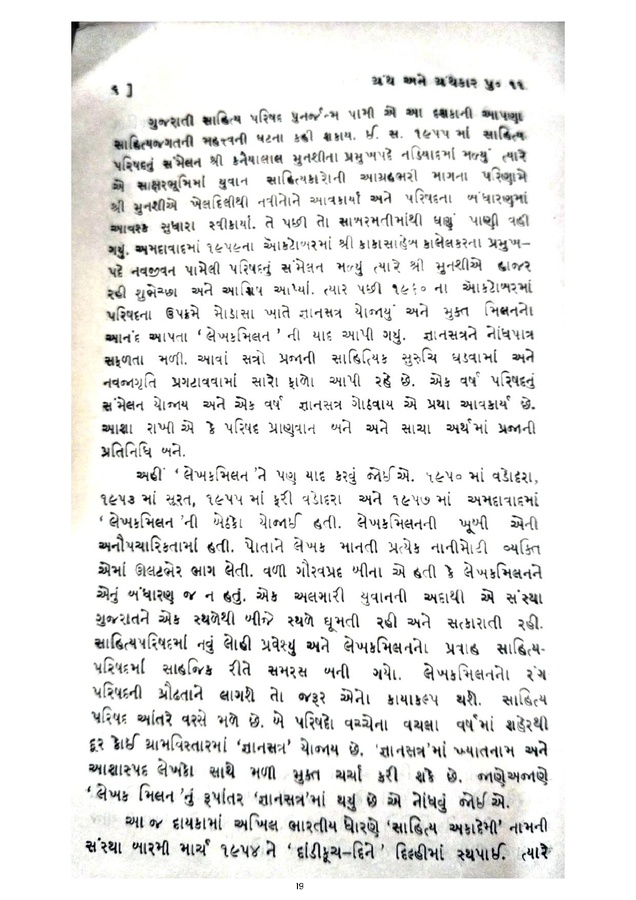 ૬ ] ગ્રંથ અને ગ્રંથકાર પુ૦ ૧૧.
ગુજરાતી સાહિત્ય પરિષદ પુનર્જન્મ પામી એ આ દશકાની આપણા
સાહિત્યજગતની મહત્ત્વની ઘટના કહી શકાય. ઈ. સ. ૧૯૫૫ માં સાહિત્ય
પરિષદનું સંમેલન શ્રી કનૈયાલાલ મુનશીના પ્રમુખપદે નડિયાદમાં મળ્યું ત્યારે
એ સાક્ષરભૂમિમાં યુવાન સાહિત્યકારોની આગ્રહભરી માગના પરિણામે
શ્રી મુનશીએ ખેલદિલીથી નવીનોને આવકાર્યા અને પરિષદના બંધારણમાં
આવશ્ક સુધારા સ્વીકાર્યા. તે પછી તો સાબરમતીમાંથી ઘણું પાણી વહી
ગયું. અમદાવાદમાં ૧૯૫૯ના ઓક્ટોબરમાં શ્રી કાકાસાહેબ કાલેલકરના પ્રમુખ–
પદે નવજીવન પામેલી પરિષદનું સંમેલન મળ્યું ત્યારે શ્રી મુનશીએ હાજર
રહી શુભેચ્છા અને આશિષ આપ્યાં. ત્યાર પછી ૧૯૬૦ ના ઓક્ટોબરમાં
પરિષદના ઉપક્રમે મોડાસા ખાતે જ્ઞાનસત્ર યોજાયું અને મુક્ત મિલનનો
આનંદ આપતા ‘ લેખકમિલન ’ ની યાદ આપી ગયું. જ્ઞાનસત્રને નોંધપાત્ર
સફળતા મળી. આવાં સત્રો પ્રજાની સાહિત્યિક સુરુચિ ઘડવામાં અને
નવજાગૃતિ પ્રગટાવવામાં સારો ફાળો આપી રહે છે. એક વર્ષ પરિષદનું
સંમેલન યોજાય અને એક વર્ષ જ્ઞાનસત્ર ગોઠવાય એ પ્રથા આવકાર્ય છે.
આશા રાખી એ કે પરિષદ પ્રાણવાન બને અને સાચા અર્થમાં પ્રજાની
પ્રતિનિધિ બને.
અહીં ‘ લેખકમિલન ’ને પણ યાદ કરવું જોઈ એ. ૧૯૫૦ માં વડોદરા,
૧૯૫૩ માં સૂરત, ૧૯૫૫ માં ફરી વડોદરા અને ૧૯૫૭ માં અમદાવાદમાં
‘ લેખકમિલન ’ની બેઠકો યોજાઈ હતી. લેખકમિલનની ખૂબી એની
અનૌપચારિકતામાં હતી. પોતાને લેખક માનતી પ્રત્યેક નાનીમોટી વ્યક્તિ
એમાં ઊલટભેર ભાગ લેતી. વળી ગૌરવપ્રદ બીના એ હતી કે લેખકમિલનને
એનું બંધારણ જ ન હતું. એક અલગારી યુવાનની અદાથી એ સંસ્થા
ગુજરાતને એક સ્થળેથી બીજે સ્થળે ઘૂમતી રહી અને સત્કારાતી રહી.
સાહિત્યપરિષદમાં નવું લોહી પ્રવેશ્યું અને લેખકમિલનનો પ્રવાહ સાહિત્ય-
પરિષદમાં સાહજિક રીતે સમરસ બની ગયો. લેખકમિલનનો રંગ
પરિષદની પ્રૌઢતાને લાગશે તો જરૂર એનો કાયાકલ્પ થશે. સાહિત્ય
પરિષદ આંતરે વરસે મળે છે. બે પરિષદો વચ્ચેના વચલા વર્ષમાં શહેરથી
દૂર કોઈ ગ્રામવિસ્તારમાં ‘જ્ઞાનસત્ર’ યોજાય છે. ‘જ્ઞાનસત્ર’માં ખ્યાતનામ અને
આશાસ્પદ લેખકો સાથે મળી મુક્ત ચર્ચા કરી શકે છે. જાણેઅજાણે
‘ લેખક મિલન ’નું રૂપાંતર ‘જ્ઞાનસત્ર’માં થયું છે એ નોંધવું જોઈ એ.
આ જ દાયકામાં અખિલ ભારતીય ધોરણે ‘સાહિત્ય અકાદેમી’ નામની
સંસ્થા બારમી માર્ચ ૧૯૫૪ ને ‘ દાંડીકૂચ–દિને ’ દિલ્હીમાં સ્થપાઈ. ત્યારે
19